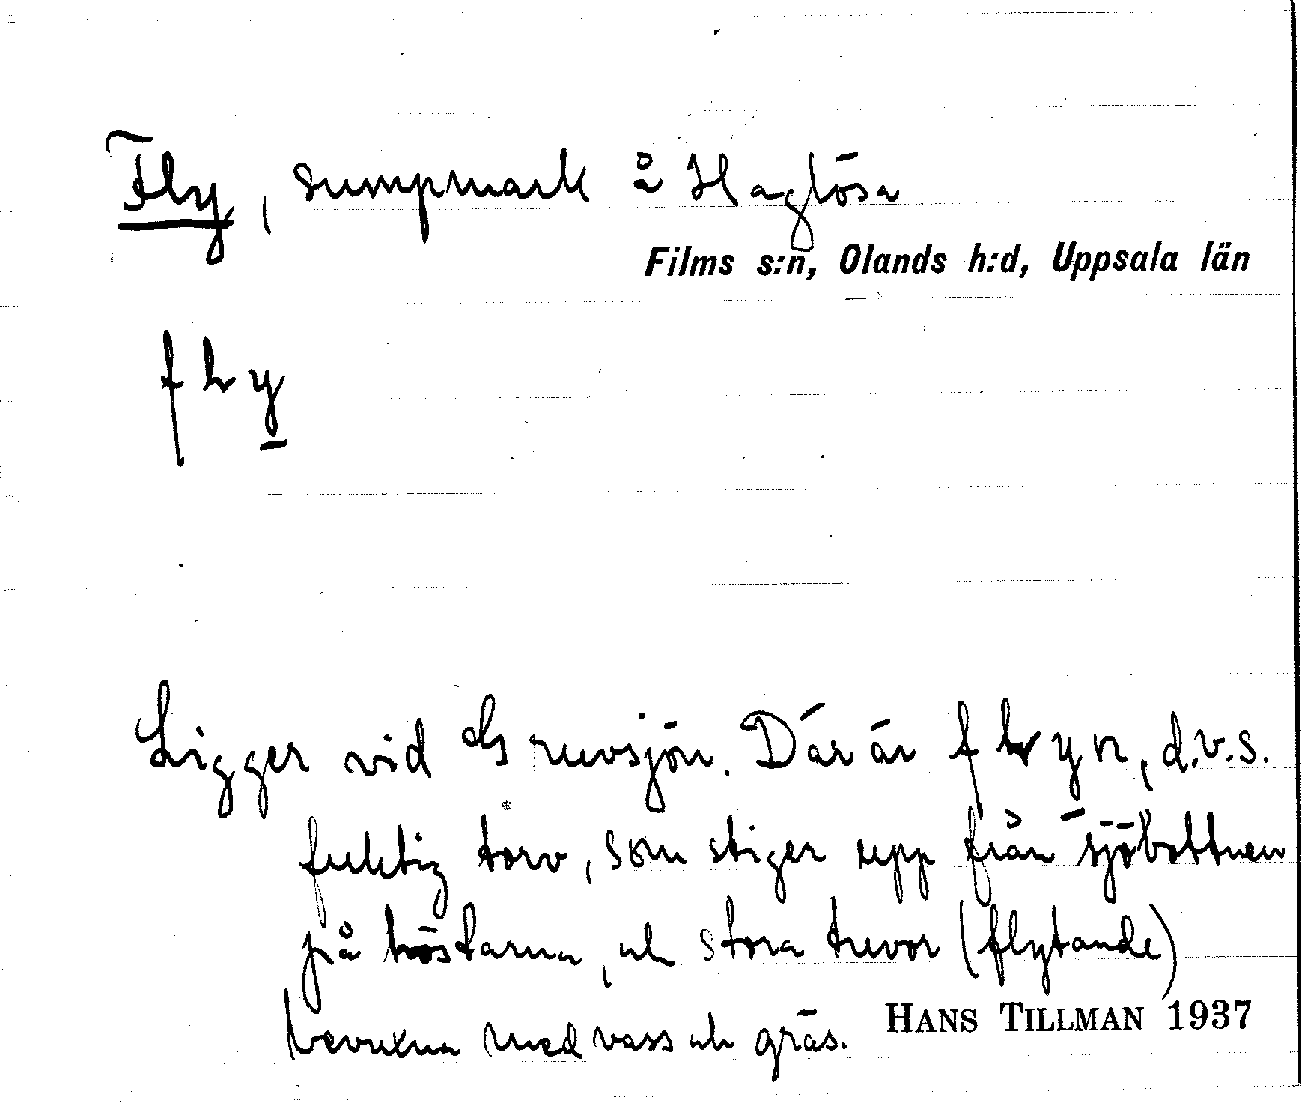 Fly, sumpmark å Haglösa
Films s:n, Olands h:d, Uppsala län
fly
Ligger vid Gruvsjön. Där är flyn, d.v.s.
fuktig torv, som stiger upp från sjöbottnen
på höstarna, och stora tuvor (flytande)
bevuxna med vass och gräs.
HANS TILLMAN 1937